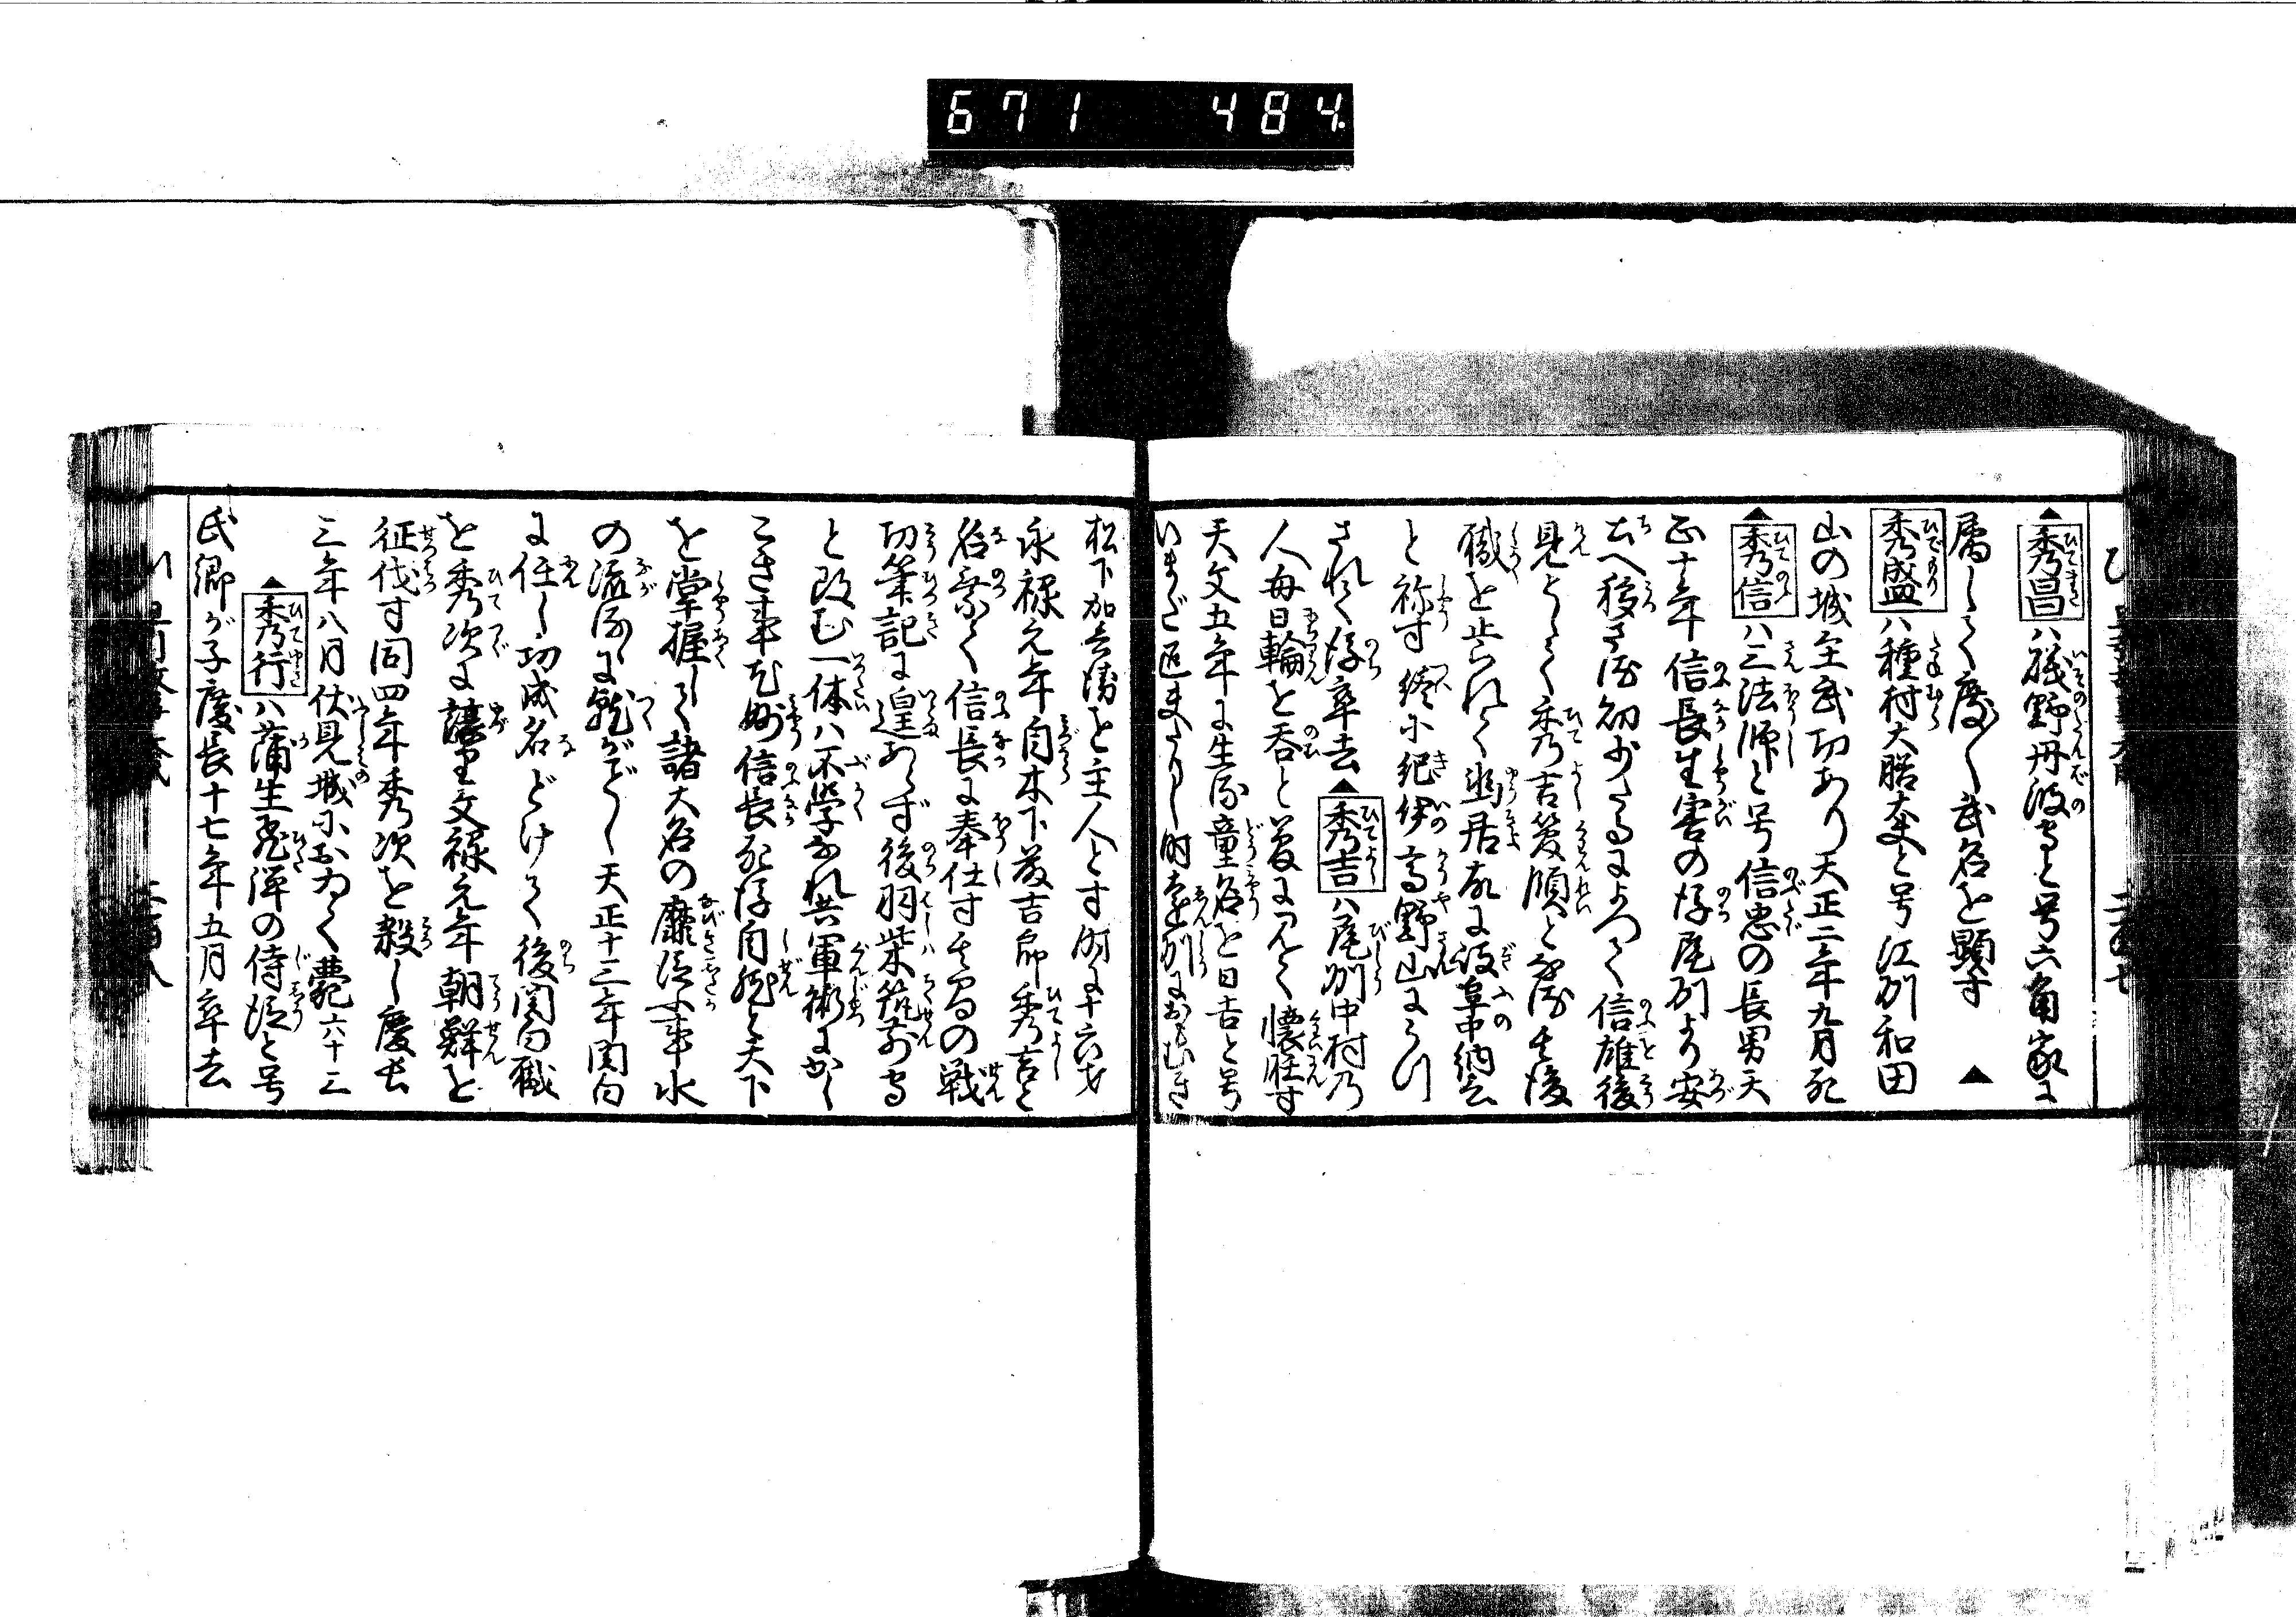 671 484
▲秀昌ハ磯野丹波守と号六角家に
属して度〻武名を顕す ▲
秀盛ハ種村大膳大夫と号江州和田
山の城主武功あり天正二年九月死
▲秀信ハ三法師と号信忠の長男天
正十年信長生害の後尾州より安
土へ移さる幼少たるによつて信雄後
見として秀吉管領となる其後
職を止られて幽居故に岐阜中納言
と称す終に紀伊高野山に
されて後卒去▲秀吉ハ尾州中村乃
人母日輪を呑と夢に見て懐胎す
天文五年に生る童名を日吉と号
いまだ匹夫たりし時遠州におもむき
松下加兵衛を主人とす時に十六才
永禄元年自木下藤吉郎秀吉と
名乗て信長に奉仕す其間の戦
功筆記に遑あらず後羽柴筑前守
と改む一体ハ不学なれ共軍術にかし
こき事尤妙信長死後自然と天下
を掌握して諸大名の靡従事水
の流るゝに就がごとし天正十三年関白
に任し功成名とげて後関白職
を秀次に譲り文禄元年朝鮮を
征伐す同四年秀次を殺し慶長
三年八月伏見城におゐて薨六十三
▲秀行ハ蒲生飛騨の侍従と号
氏郷が子慶長十七年五月卒去